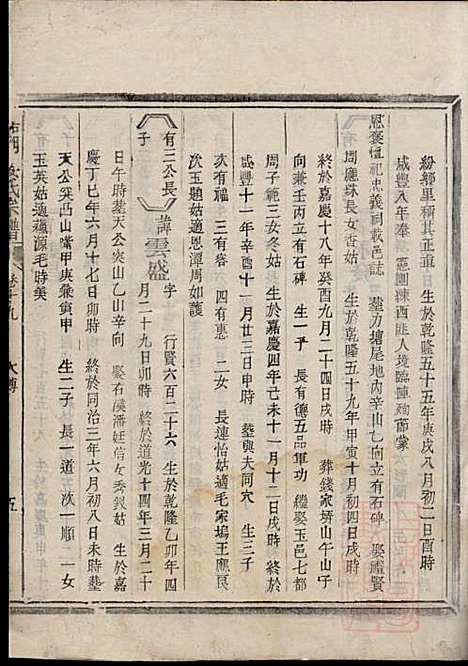 紛鄉里稱其正直　生於乾隆五十五年庚戌八月初二日酉時
咸豐八年奉　憲團練西匪入境臨陣殉節蒙
恩褒恤祀忠義祠載邑誌　塟力塘尾地丙辛山乙向立有石碑　娶禮賢
周應珠長女香姑　生於乾隆五十九年甲寅十月初四日戌時
終於嘉慶十八年癸酉九月二十四日戌時　葬錢家塝山午山子
向兼壬丙立有石碑　生一子　長有德五品軍功　繼娶玉邑七都
周子範三女冬姑　生於嘉慶四年己未十一月十二日戌時　終於
咸豐十一年辛酉十一月廿三日申時　塟與夫同穴　生三子
次有福　三有容　四有惠　二女　長連怡姑適毛家塢王應良
次玉題姑適恩潭周如護
有三公長子　諱雲盛　字　行賢六百二十六　生於乾隆乙卯年四
月二十九日卯時　終於道光十四年三月二十
日午時塟天公突山乙山辛向　娶石溪潘廷信女秀釵姑　生於嘉
慶丁巳年六月十七日卯時　終於同治三年六月初八日未時塟
天公突凸山嘴甲庚兼寅申　生二子　長一道　次一順　二女
玉英姑適蘊源毛時美
氏宗譜　卷十九　大傳　五